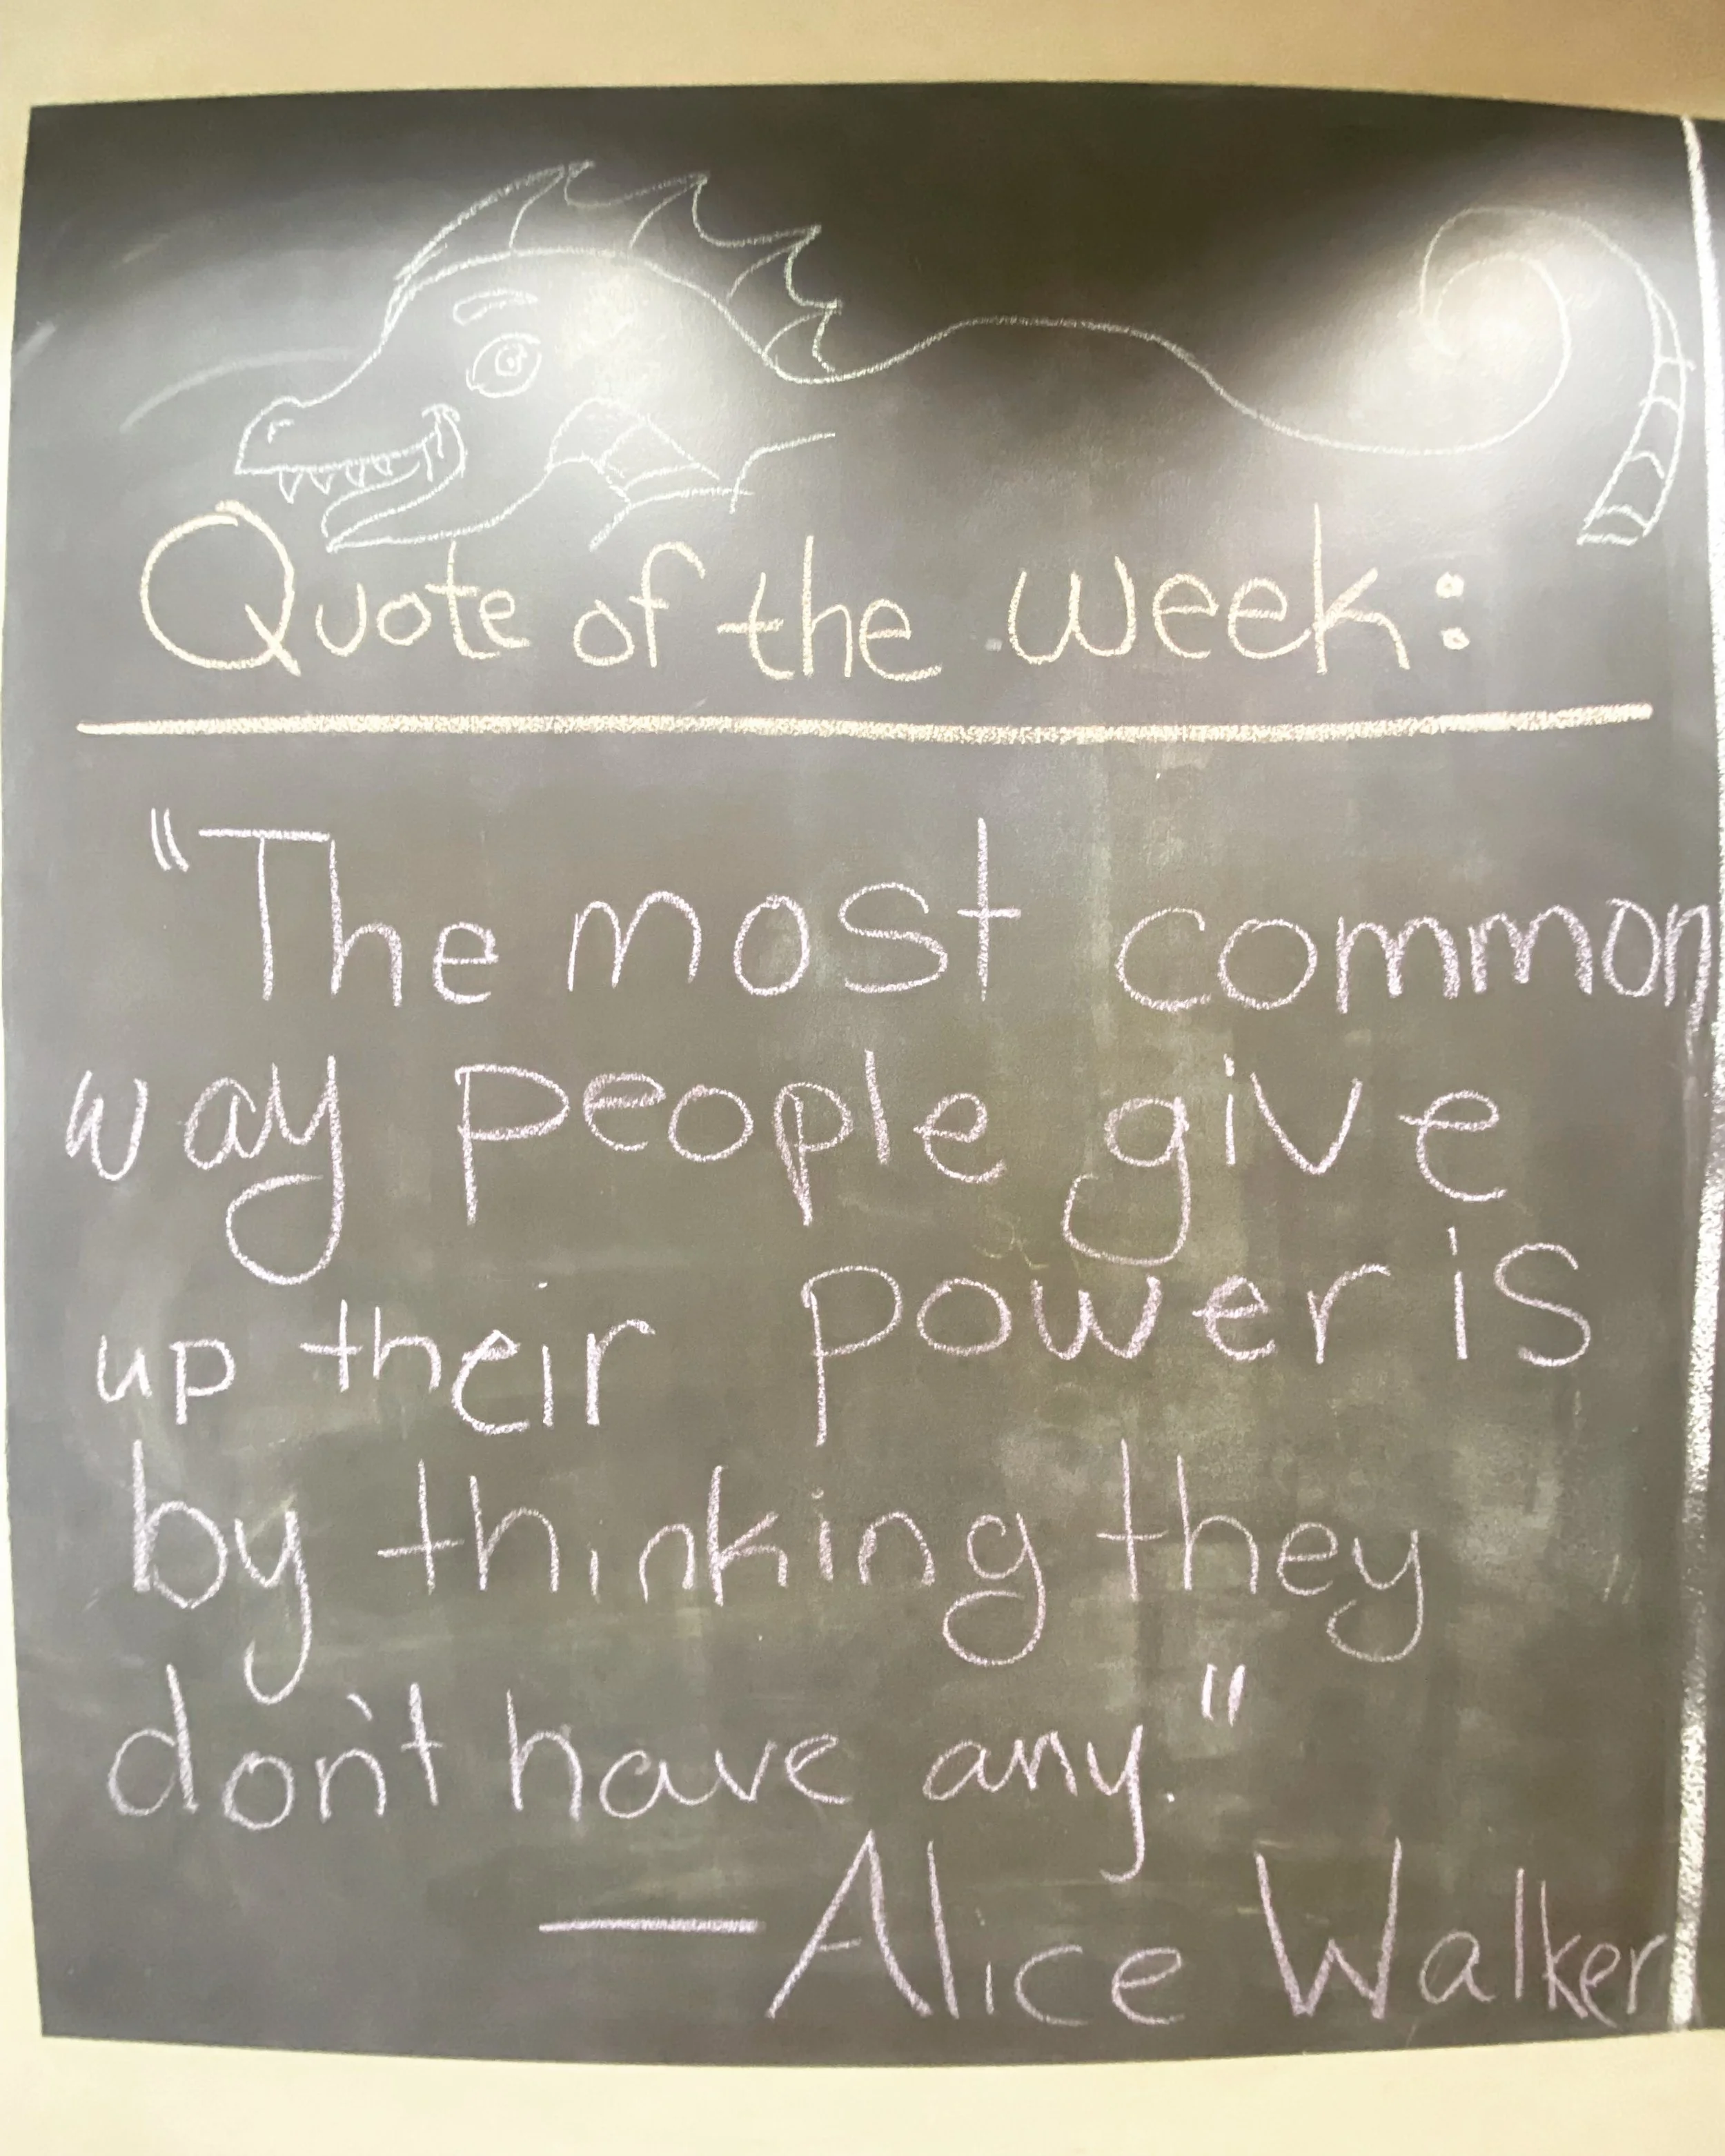 Quote of the week:
"The most common
way people give
up their power is
by thinking they
don't have any."
—Alice Walker